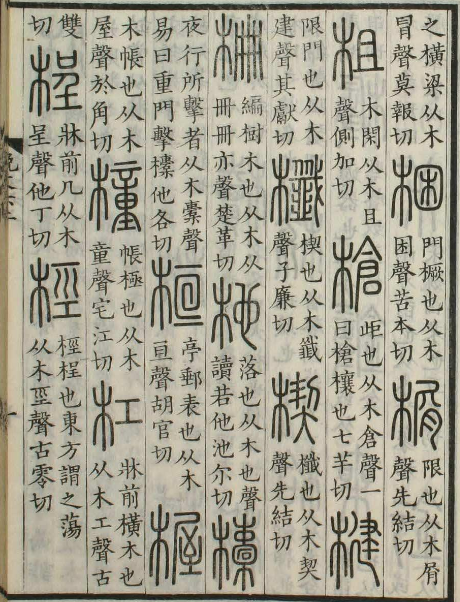 之橫梁从木
冒聲莫報切
梱
門橛也从木
困聲苦本切
榍
限也从木屑
聲先結切
柤
木閑从木且
聲側加切
槍
歫也从木倉聲一
曰槍欀也七羊切
楗
限門也从木
建聲其獻切
櫼
楔也从木韱
聲子廉切
楔
櫼也从木契
聲先結切
柵
編樹木也从木从
冊冊亦聲楚革切
杝
落也从木也聲
讀若他池尒切
㯓
夜行所擊者从木橐聲
易曰重門擊㯓他各切
桓
亭郵表也从木
亘聲胡官切
楃
木帳也从木
屋聲於角切
橦
帳極也从木
童聲宅江切
杠
牀前橫木也
从木工聲古
雙
切
桯
牀前几从木
呈聲他丁切
桱
桱桯也東方謂之蕩
从木巠聲古零切